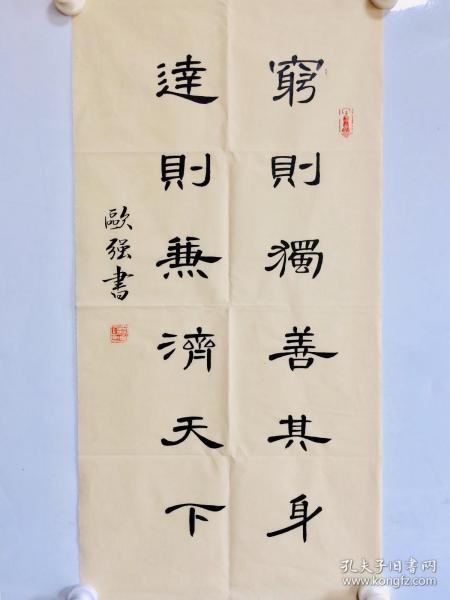 窮則獨善其身
達則兼濟天下
歐强書
孔夫子旧书网
www.kongfz.com